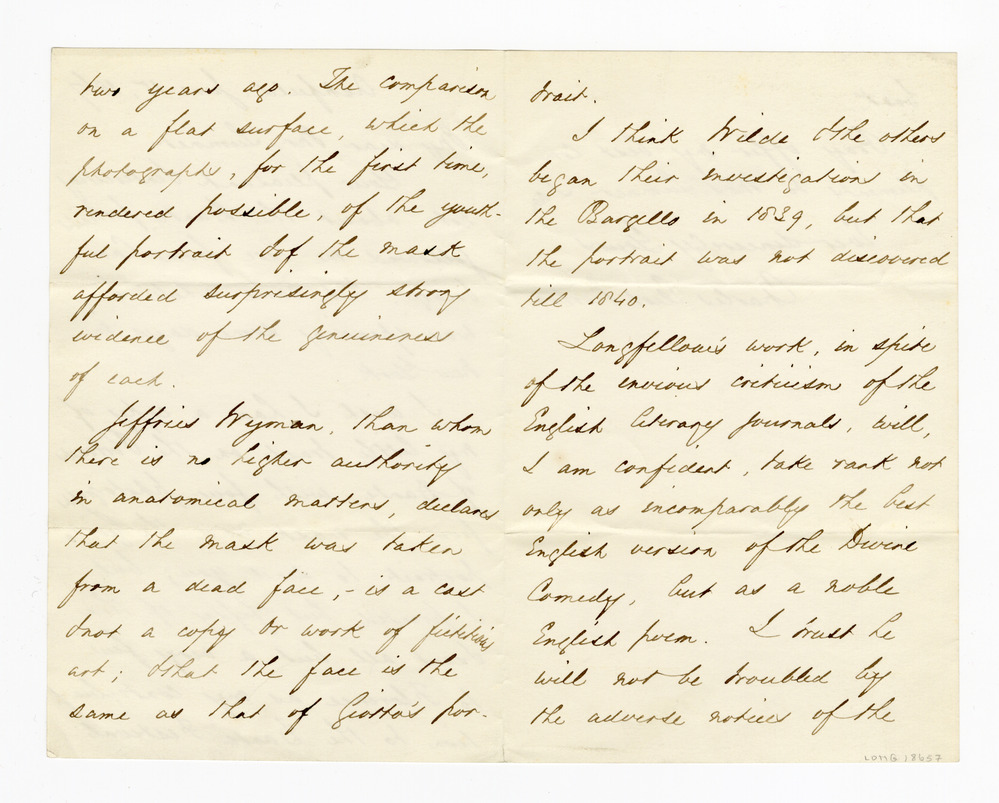 two years ago. The comparison
on a flat surface, which the
photographs, for the first time,
rendered possible, of the youth-
ful portrait & of the mask
afforded surprisingly strong
evidence of the genuineness
of each.
Jeffries Wyman, than whom
there is no higher authority
in anatomical matters, declares
that the mask was taken
from a dead face, - is a cast
& not a copy or work of fictitious
art; & that the face is the
same as that of Giotto's por-
trait.
I think Wilde & the others
began their investigations in
the Bargello in 1839, but that
the portrait was not discovered
till 1840.
Longfellow's work, in spite
of the envious criticism of the
English literary journals, will,
I am confident, take rank not
only as incomparably the best
English version of the Divine
Comedy, but as a noble
English poem. I trust he
will not be troubled by
the adverse notices of the
LONG 18657